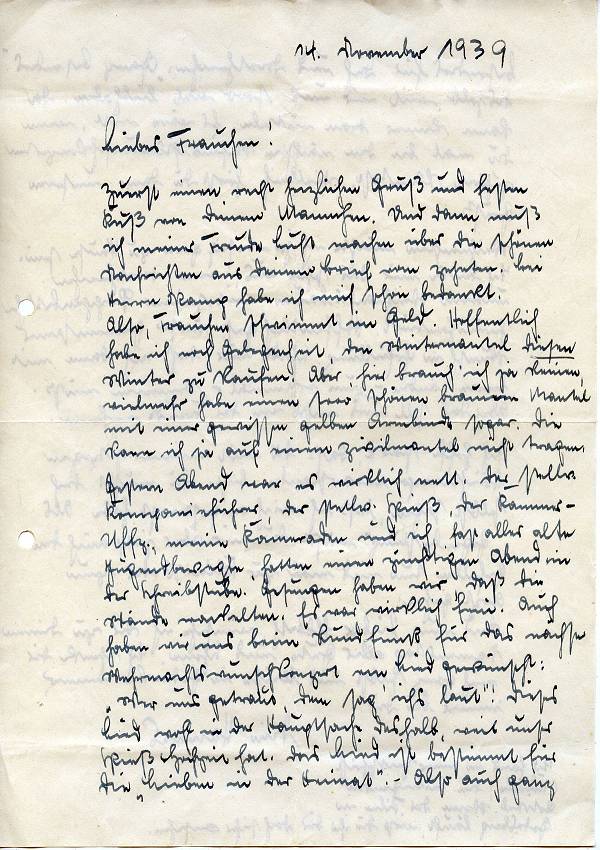 14. November 1939
Liebes Frauchen!
Zuerst einen recht herzlichen Gruß und festen
Kuß von Deinem Mannchen. Und dann muß
ich meiner Freude Luft machen über die schönen
Nachrichten aus Deinem Brief vom zehnten. Bei
Herrn habe ich mich schon bedankt.
Also, Frauchen schwimmt im Geld. Hoffentlich
habe ich noch Gelegenheit, den Wintermantel diesen
Winter zu kaufen. Aber, hier brauch' ich ja keinen,
vielmehr habe einen sooo schönen braunen Mantel
mit einer gewissen gelben Armbinde sogar. Die
kann ich ja auf einem Zivilmantel nicht tragen.
Gestern Abend war es wirklich nett. Der stellv.
Kompanieführer, der stellv. Spieß, der Kammer-
Uffz., meine Kameraden und ich, fast alles alte
Jugendbewegte, hatten einen zünftigen Abend in
der Schreibstube. Gesungen haben wir, daß die
Wände wackelten. Es war wirklich fein. Auch
haben wir uns beim Rundfunk für das nächste
Wehrmachtswunschkonzert ein Lied gewünscht:
"Wer uns getraut, dem sag' ich's laut"! Dieses
Lied wohl in der Hauptsache deshalb, weil unser
Spieß Hochzeit hat. Das Lied ist bestimmt für
die "Lieben in der Heimat". - Also auch ganz